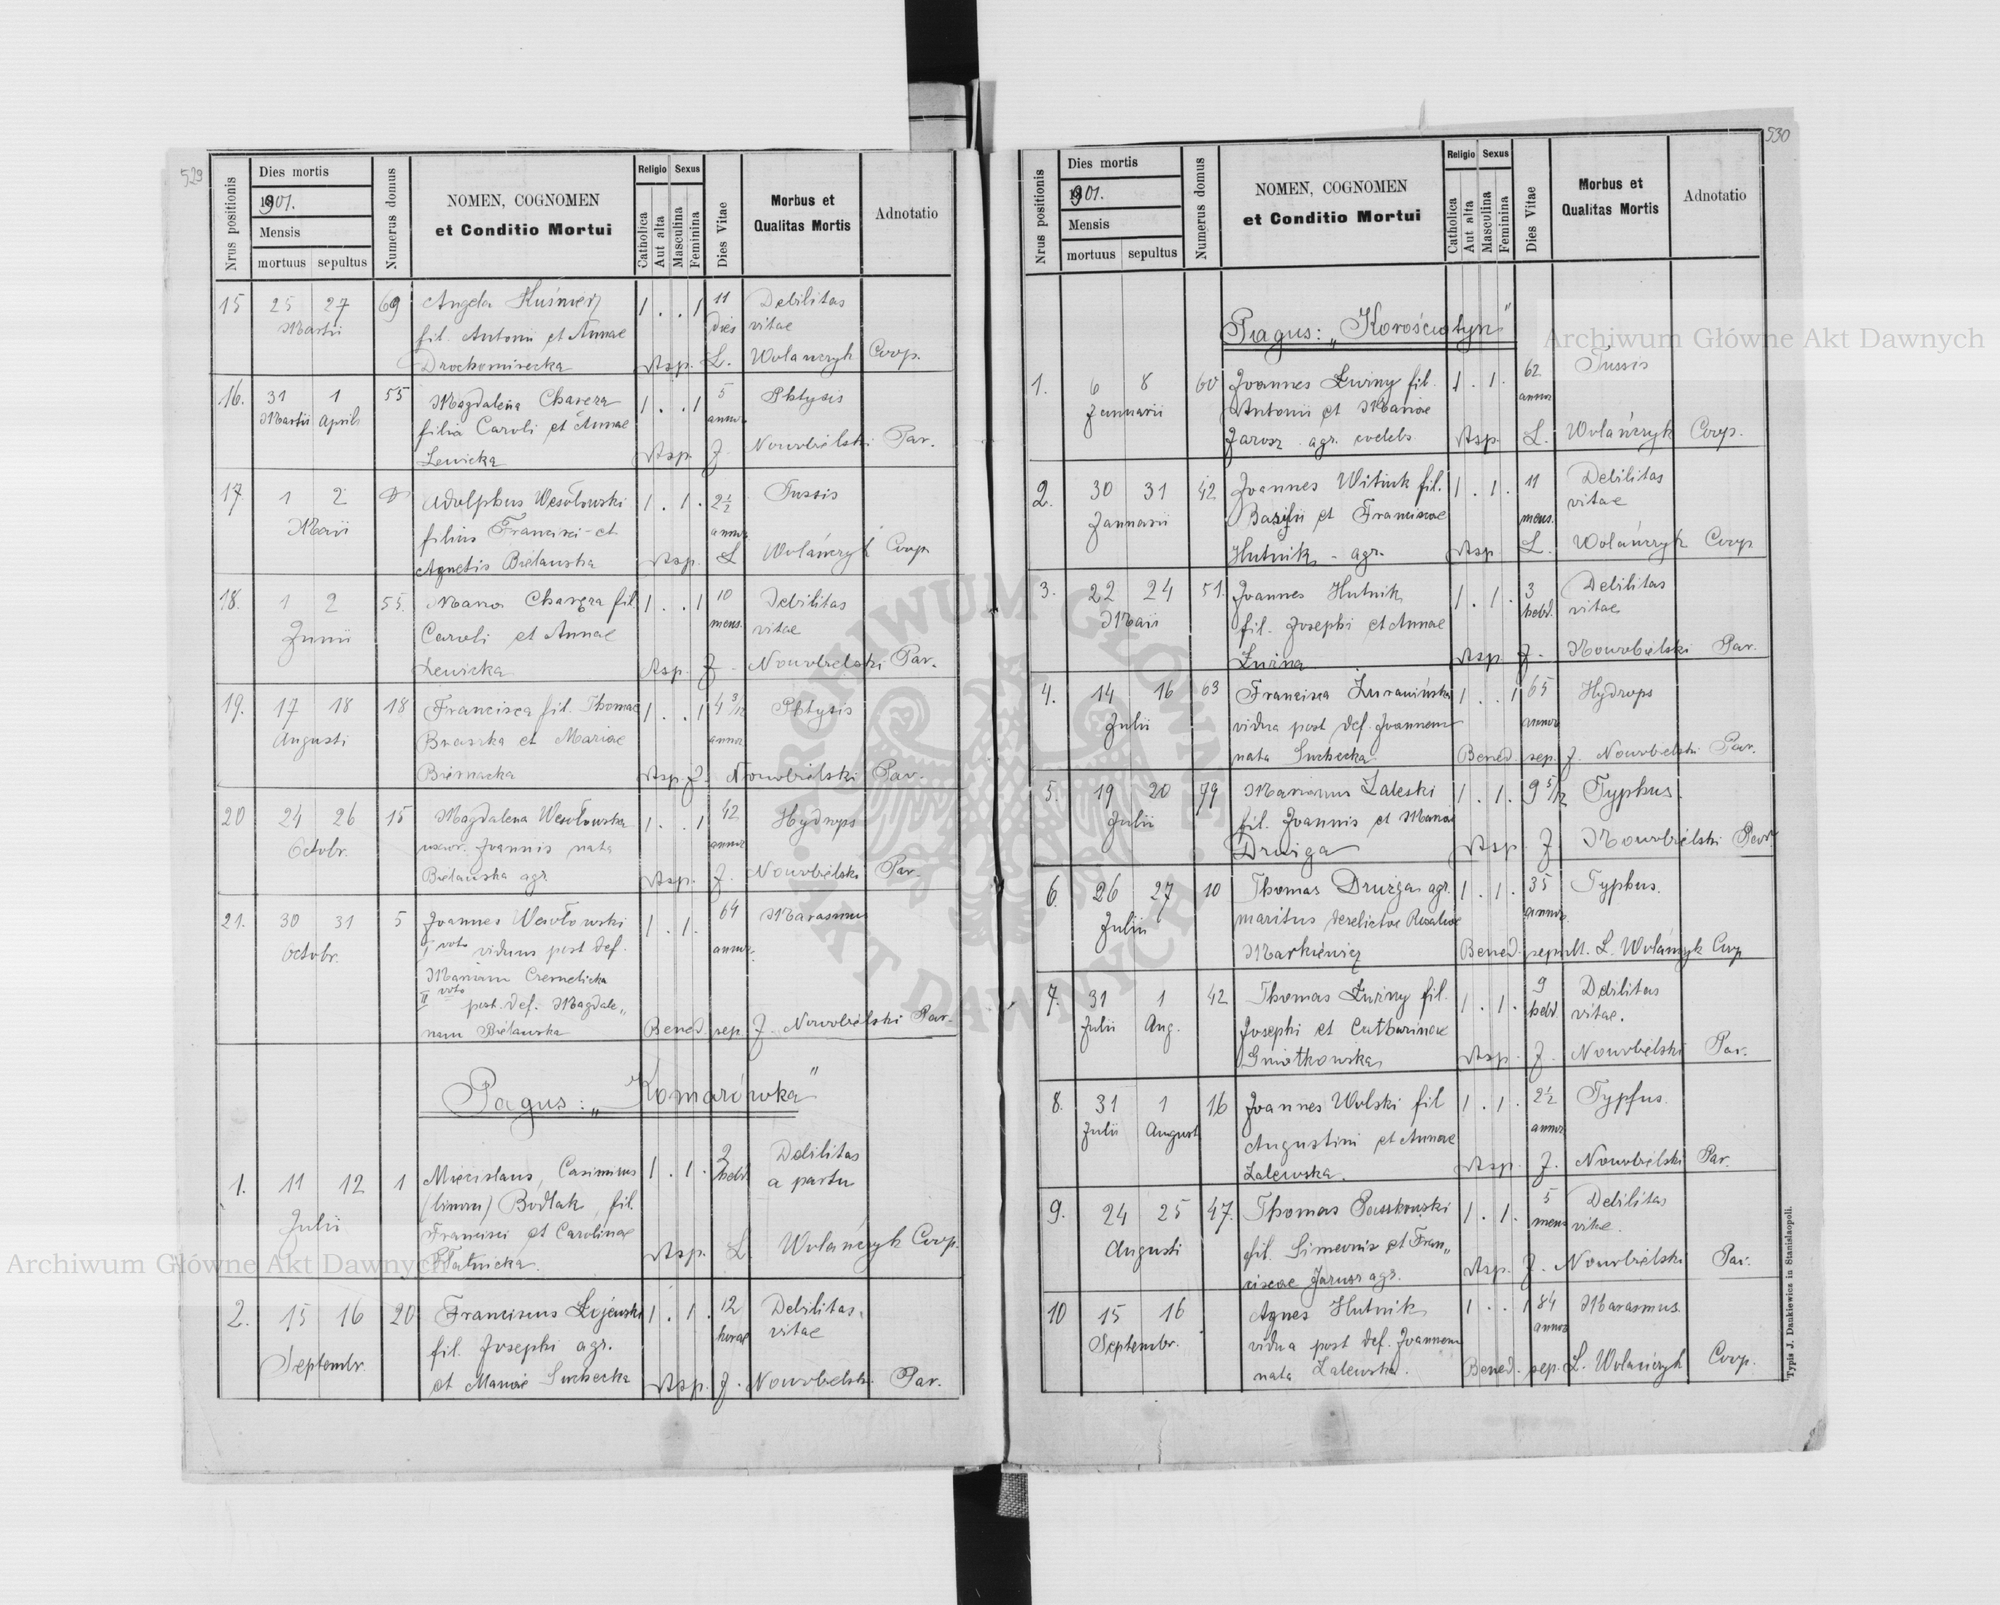 529
Nrus positionis
Dies mortis
1901.
Mensis
mortuus sepultus
Numerus domus
NOMEN, COGNOMEN
et Conditio Mortui
Religio Sexus
Catholica
Aut alta
Masculina
Feminina
Dies Vitae
Morbus et
Qualitas Mortis
Adnotatio
15 25 27 69 Angela Kuśnierz 1 . . 1 11 Debilitas
Martii fil. Antonii et Annae dies vitae
Drochomirecka Asp. L. Wolańczyk Coop.
16. 31 1 55 Magdalena 1 . . 1 5 Phtysis
Martii Aprili filia Caroli et Annae annor.
Lewicka Asp. J. Nowobilski Par.
17 1 2 Adolphus Wesołowski 1 . 1 . 2 1/2 Tussis
Maii filius Francisci et annor.
Agnetis Bielawska Asp. L Wolańczyk Coop
18. 1 2 55. Maria fil. 1 . . 1 10 Debilitas
Junii Caroli et Annae mens. vitae
Lewicka Asp. J. Nowobielski Par.
19. 17 18 18 Francisca fil. Thomae 1 . . 1 4 3/12 Phtysis
Augusti et Mariae annor.
Biernacka Asp. J. Nowobielski Par.
20 24 26 15 Magdalena Wesołowska 1 . . 1 42 Hydrops
Octobr. uxor. Joannis nata annor.
Bielawska agr. Asp. J. Nowobielski Par.
21. 30 31 5 Joannes Wesołowski 1 . 1 . 64 Marasmus
Octobr. I voto viduus post def. annor.
Mariam Czemelicka
II voto post. def. Magdale„
nam Bielawska Bened. sep. J. Nowobielski Par.
Pagus: „Komarówka"
1. 11 12 1 Miecislaus, Casimirus 1 . 1 . 2 Debilitas
Julii Bodłak, fil. hebd. a partu
Francisci et Carolinae
Asp. L. Wolańczyk Coop.
2. 15 16 20 Franciscus 1 . 1 . 12 Debilitas
Septembr. fil. Josephi agr. horae vitae
et Mariae Suchecka Asp. J. Nowobielski Par.
530
Nrus positionis
Dies mortis
1901.
Mensis
mortuus sepultus
Numerus domus
NOMEN, COGNOMEN
et Conditio Mortui
Religio Sexus
Catholica
Aut alta
Masculina
Feminina
Dies Vitae
Morbus et
Qualitas Mortis
Adnotatio
Pagus: „Korościatyn"
1. 6 8 60 Joannes Łużny fil. 1 . 1 . 62 Tussis
Januarii Antonii et Mariae annor.
Jarosz agr. coelebs. Asp. L. Wolańczyk Coop.
2. 30 31 42 Joannes Witiuk fil. 1 . 1 . 11 Debilitas
Januarii Basilii et Franciscae mens. vitae
Hutnik - agr. Asp. L. Wolańczyk Coop
3. 22 24 51. Joannes Hutnik 1 . 1 . 3 Debilitas
Maii fil. Josephi et Annae hebd. vitae
Łużna Asp. J. Nowobielski Par.
4. 14 16 63 Francisca Żurawińska 1 . . 1 65 Hydrops
Julii vidua post def. Joannem annor.
nata Suchecka Bened. sep. J. Nowobielski Par.
5. 19 20 79 Marianus Zaleski 1 . 1 . 9 5/12 Typhus.
Julii fil. Joannis et Mariae
Drużga Asp. J. Nowobielski Par.
6. 26 27 10 Thomas Drużga agr. 1 . 1 . 35 Typhus.
Julii maritus derelictae Rosaliae annor.
Markiewicz Bened. sepult. L. Wolańczyk Coop
7. 31 1 42 Thomas Łużny fil. 1 . 1 . 9 Debilitas
Julii Aug. Josephi et Catharinae hebd. vitae.
Gniotkowska Asp. J. Nowobielski Par.
8. 31 1 16 Joannes Wolski fil 1 . 1 . 2 1/2 Typhus.
Julii August Augustini et Annae annor.
Zalewska. Asp. J. Nowobielski Par.
9. 24 25 47. Thomas Paszkowski 1 . 1 . 5 Debilitas
Augusti fil. Simeonis et Fran„ mens. vitae.
ciscae Jarosz agr. Asp. J. Nowobielski Par.
10 15 16 Agnes Hutnik 1 . . 1 84 Marasmus.
Septembr. vidua post def. Joannem annor.
nata Zalewska. Bened. sep. L. Wolańczyk Coop.
Typis J. Dankiewicz in Stanislaopoli.
Archiwum Główne Akt Dawnych
Archiwum Główne Akt Dawnych
ARCHIWUM GŁÓWNE AKT DAWNYCH